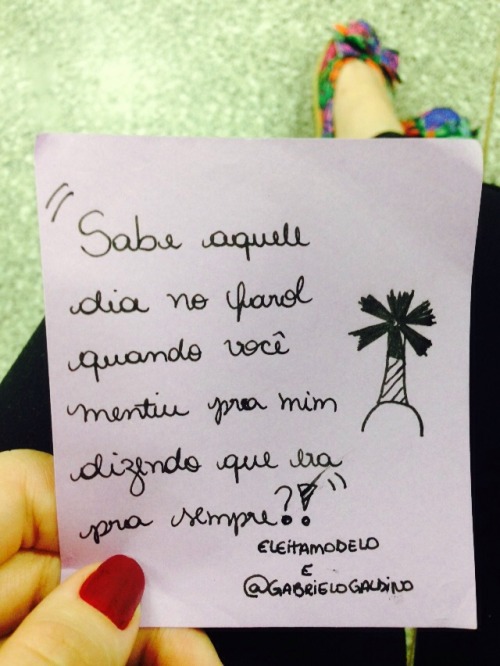 "Sabe aquele
dia no farol
quando você
mentiu pra mim
dizendo que era
pra sempre?!"
ELEITAMODELO
E
@GABRIELOGALDINO